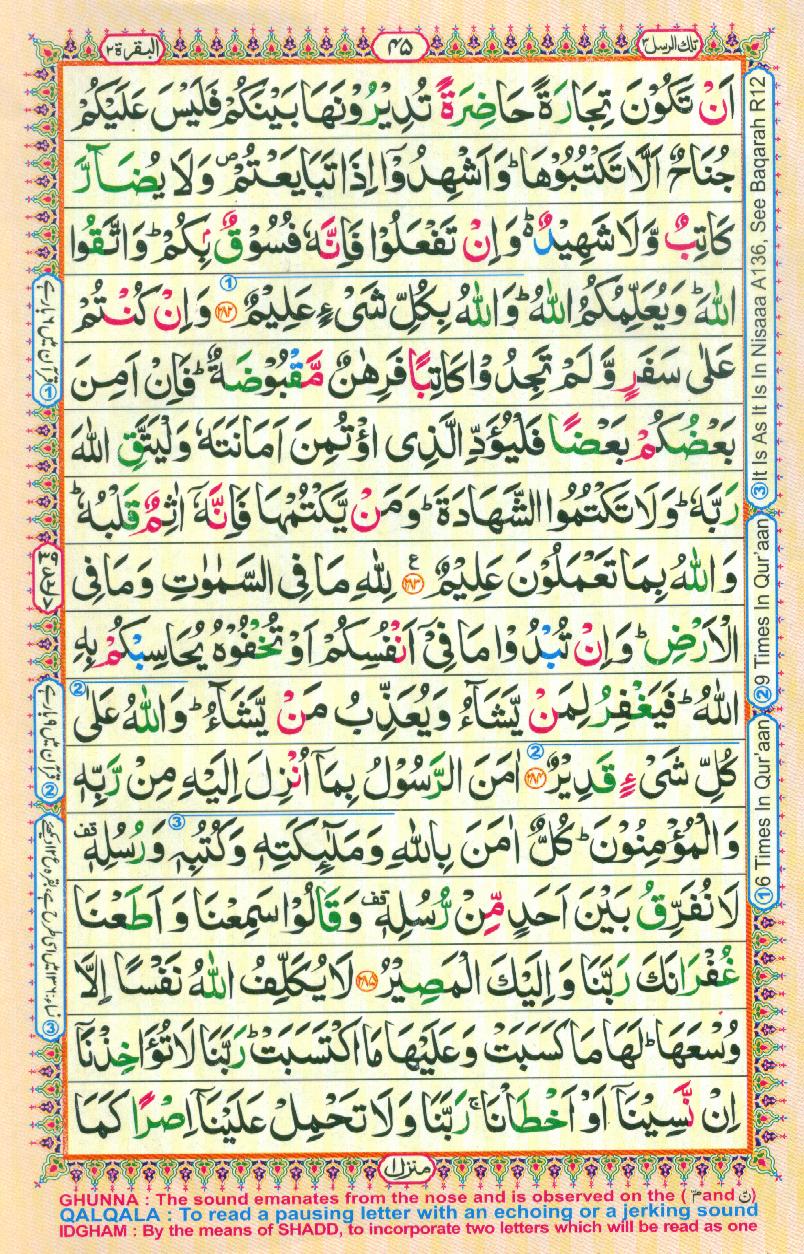 تلك الرسل ٣
۴۵
البقرة ٢
اَنْ تَكُوْنَ تِجَارَةً حَاضِرَةً تُدِيْرُوْنَهَا بَيْنَكُمْ فَلَيْسَ عَلَيْكُمْ
جُنَاحٌ اَلَّا تَكْتُبُوْهَا ؕ وَاَشْهِدُوْۤا اِذَا تَبَايَعْتُمْ ۪ وَلَا يُضَآرَّ
كَاتِبٌ وَّلَا شَهِيْدٌ ؕ۬ وَاِنْ تَفْعَلُوْا فَاِنَّهٗ فُسُوْقٌۢ بِكُمْ ؕ وَاتَّقُوا
اللّٰهَ ؕ وَيُعَلِّمُكُمُ اللّٰهُ ؕ وَاللّٰهُ بِكُلِّ شَىْءٍ عَلِيْمٌ ① ﴿۲۸۲﴾ وَاِنْ كُنْتُمْ
عَلٰى سَفَرٍ وَّلَمْ تَجِدُوْا كَاتِبًا فَرِهٰنٌ مَّقْبُوْضَةٌ ؕ فَاِنْ اَمِنَ
بَعْضُكُمْ بَعْضًا فَلْيُؤَدِّ الَّذِى اؤْتُمِنَ اَمَانَتَهٗ وَلْيَتَّقِ اللّٰهَ
رَبَّهٗ ؕ وَلَا تَكْتُمُوا الشَّهَادَةَ ؕ وَمَنْ يَّكْتُمْهَا فَاِنَّهٗۤ اٰثِمٌ قَلْبُهٗ ؕ
وَاللّٰهُ بِمَا تَعْمَلُوْنَ عَلِيْمٌ ﴿۲۸۳﴾ ع لِلّٰهِ مَا فِى السَّمٰوٰتِ وَمَا فِى
الْاَرْضِ ؕ وَاِنْ تُبْدُوْا مَا فِىْۤ اَنْفُسِكُمْ اَوْ تُخْفُوْهُ يُحَاسِبْكُمْ بِهِ
اللّٰهُ ؕ فَيَغْفِرُ لِمَنْ يَّشَآءُ وَيُعَذِّبُ مَنْ يَّشَآءُ ؕ ② وَاللّٰهُ عَلٰى
كُلِّ شَىْءٍ قَدِيْرٌ ② ﴿۲۸۴﴾ اٰمَنَ الرَّسُوْلُ بِمَاۤ اُنْزِلَ اِلَيْهِ مِنْ رَّبِّهٖ
وَالْمُؤْمِنُوْنَ ؕ كُلٌّ اٰمَنَ بِاللّٰهِ وَمَلٰٓئِكَتِهٖ وَكُتُبِهٖ ③ وَرُسُلِهٖ قف
لَا نُفَرِّقُ بَيْنَ اَحَدٍ مِّنْ رُّسُلِهٖ قف وَقَالُوْا سَمِعْنَا وَاَطَعْنَا
غُفْرَانَكَ رَبَّنَا وَاِلَيْكَ الْمَصِيْرُ ﴿۲۸۵﴾ لَا يُكَلِّفُ اللّٰهُ نَفْسًا اِلَّا
وُسْعَهَا ؕ لَهَا مَا كَسَبَتْ وَعَلَيْهَا مَا اكْتَسَبَتْ ؕ رَبَّنَا لَا تُؤَاخِذْنَاۤ
اِنْ نَّسِيْنَاۤ اَوْ اَخْطَاْنَا ۚ رَبَّنَا وَلَا تَحْمِلْ عَلَيْنَاۤ اِصْرًا كَمَا
منزل ١
① 6 Times In Qur'aan
② 9 Times In Qur'aan
③ It Is As It Is In Nisaaa A136, See Baqarah R12
① قرآن میں ٦ بار ہے
② قرآن میں ٩ بار ہے
GHUNNA : The sound emanates from the nose and is observed on the ( مّ and نّ )
QALQALA : To read a pausing letter with an echoing or a jerking sound
IDGHAM : By the means of SHADD, to incorporate two letters which will be read as one